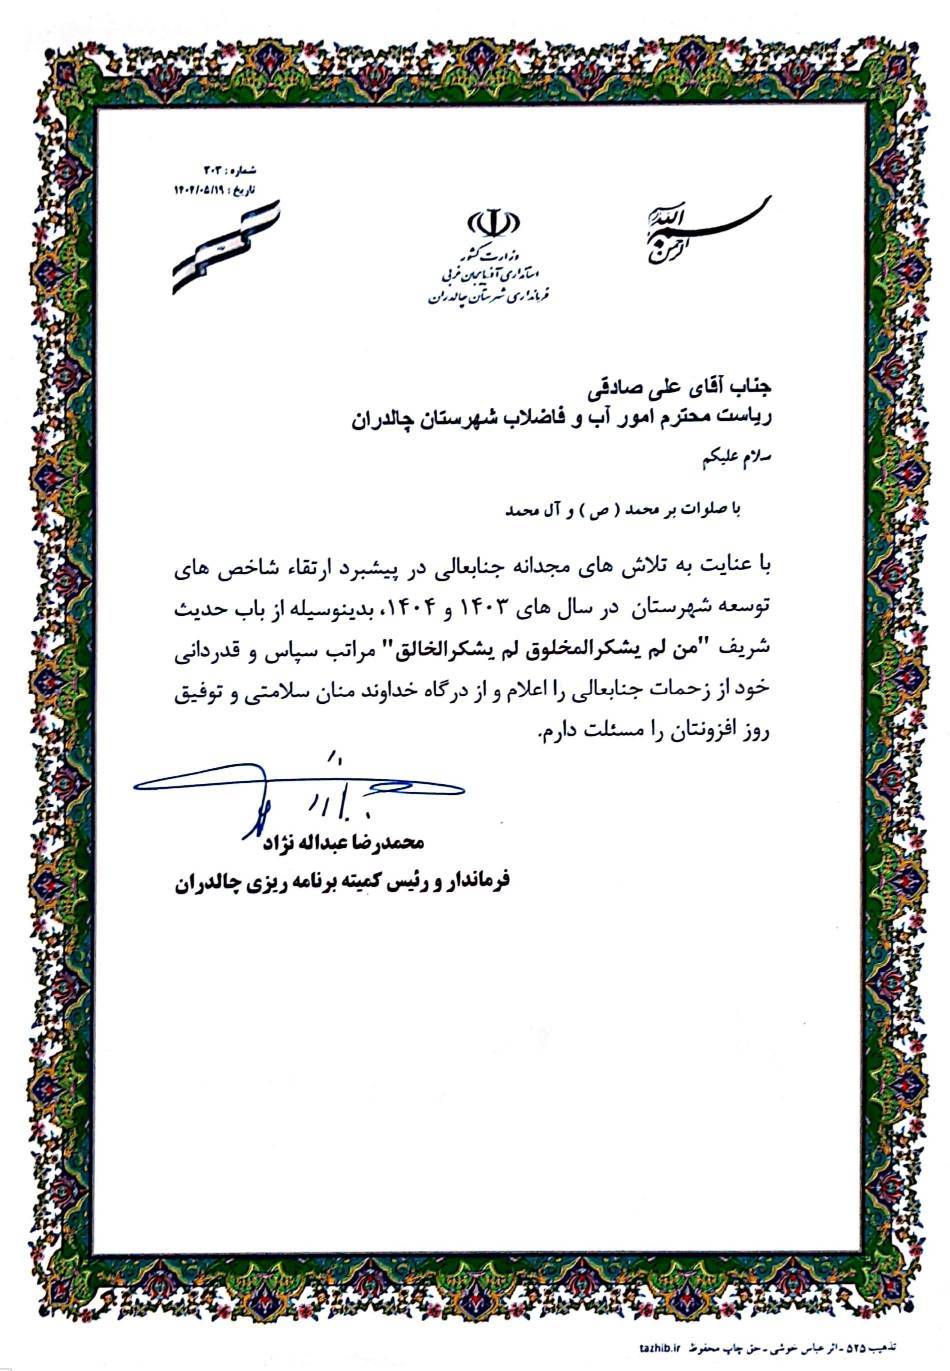 شماره : ۳۰۳
تاریخ : ۱۴۰۴/۰۵/۱۹
بسم الله الرحمن الرحیم
وزارت کشور
استانداری آذربایجان غربی
فرمانداری شهرستان چالدران
جناب آقای علی صادقی
ریاست محترم امور آب و فاضلاب شهرستان چالدران
سلام علیکم
با صلوات بر محمد ( ص ) و آل محمد
با عنایت به تلاش های مجدانه جنابعالی در پیشبرد ارتقاء شاخص های
توسعه شهرستان در سال های ۱۴۰۳ و ۱۴۰۴، بدینوسیله از باب حدیث
شریف "من لم یشکرالمخلوق لم یشکرالخالق" مراتب سپاس و قدردانی
خود از زحمات جنابعالی را اعلام و از درگاه خداوند منان سلامتی و توفیق
روز افزونتان را مسئلت دارم.
محمدرضا عبداله نژاد
فرماندار و رئیس کمیته برنامه ریزی چالدران
تذهیب ۵۲۵ - اثر عباس خوشی - حق چاپ محفوظ tazhib.ir